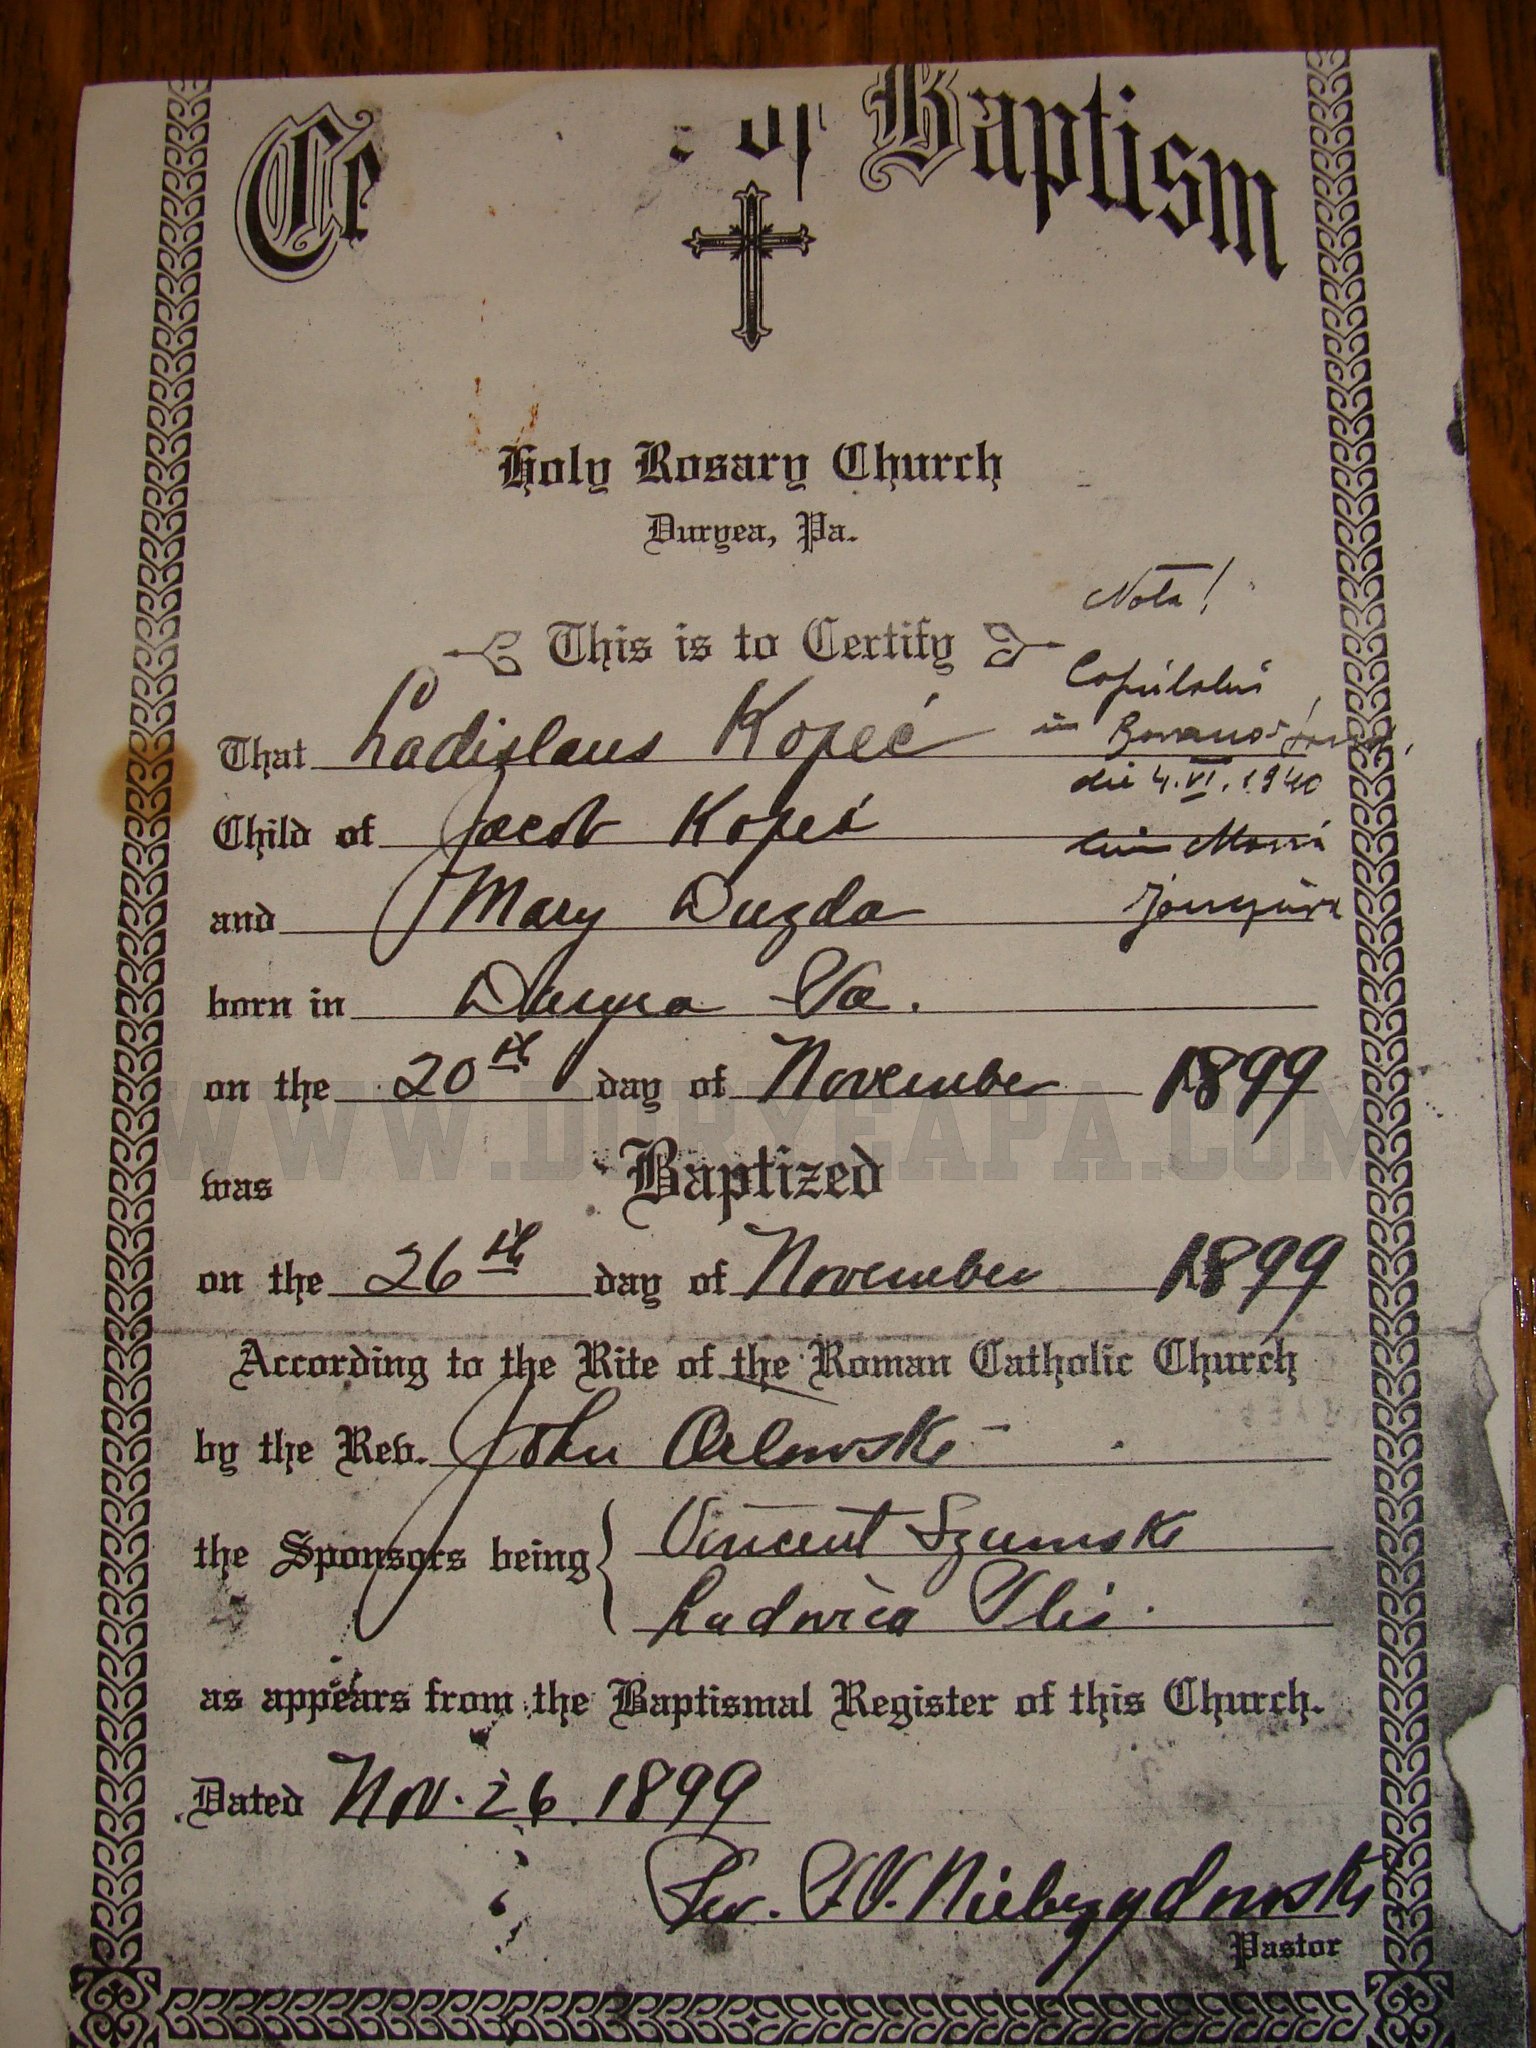 Ce e of Baptism
Holy Rosary Church
Duryea, Pa.
Nota!
This is to Certify
Copulatus
That Ladislaus Kopeć in
die 4. VI. 1940
Child of Jacob Kopeć cum Maria
and Mary Duzda
born in Duryea Pa.
on the 20th day of November 1899
WWW.DURYEAPA.COM
was Baptized
on the 26th day of November 1899
According to the Rite of the Roman Catholic Church
by the Rev. John Orlowski
the Sponsors being Vincent Szumski
Ludwica Plis.
as appears from the Baptismal Register of this Church.
Dated Nov. 26. 1899
Rev. F. V. Niebzydowski
Pastor